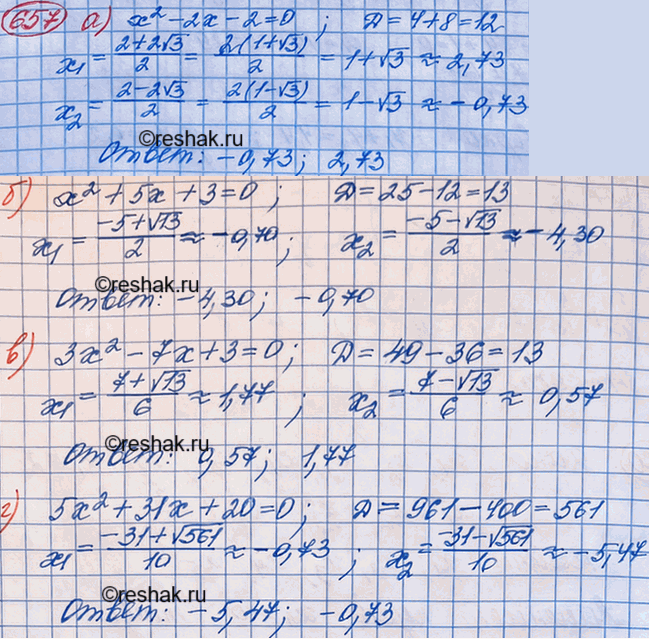 657 а) x² - 2x - 2 = 0 ; D = 4 + 8 = 12
x₁ = (2+2√3)/2 = 2(1+√3)/2 = 1+√3 ≈ 2,73
x₂ = (2-2√3)/2 = 2(1-√3)/2 = 1-√3 ≈ -0,73
©reshak.ru
Ответ: -0,73; 2,73
б) x² + 5x + 3 = 0 ; D = 25 - 12 = 13
x₁ = (-5+√13)/2 ≈ -0,70 ; x₂ = (-5-√13)/2 ≈ -4,30
©reshak.ru
Ответ: -4,30; -0,70
в) 3x² - 7x + 3 = 0 ; D = 49 - 36 = 13
x₁ = (7+√13)/6 ≈ 1,77 ; x₂ = (7-√13)/6 ≈ 0,57
©reshak.ru
Ответ: 0,57; 1,77
г) 5x² + 31x + 20 = 0 ; D = 961 - 400 = 561
x₁ = (-31+√561)/10 ≈ -0,73 ; x₂ = (-31-√561)/10 ≈ -5,47
©reshak.ru
Ответ: -5,47; -0,73